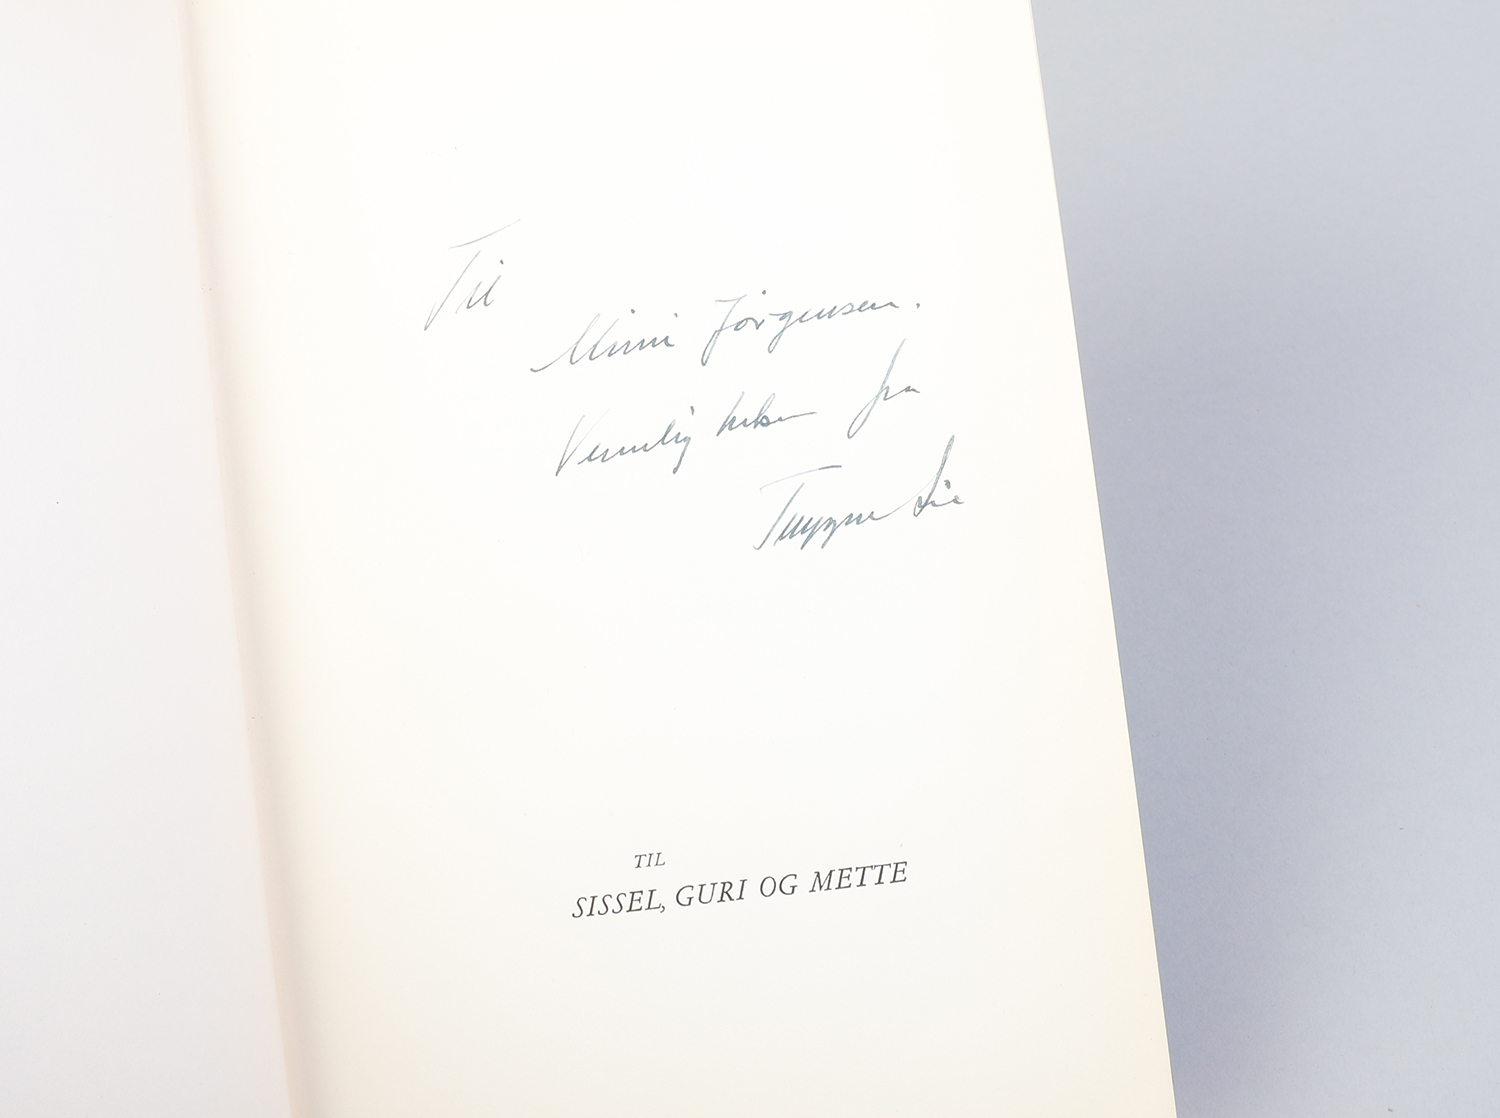 Til
Mimi Jørgensen.
Vennlig hilsen fra
Trygve Lie
TIL
SISSEL, GURI OG METTE